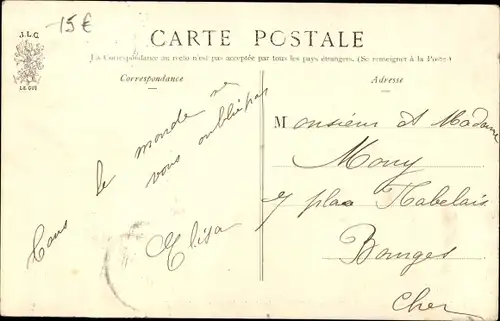 -15€
J.L.C
LE GUI
CARTE POSTALE
La Correspondance au recto n'est pas acceptée par tous les pays étrangers. (Se renseigner à la Poste)
Correspondance
Adresse
Tous le monde ne
vous oublie pas
Elisa
Monsieur et Madame
Mouy
7 place Rabelais
Bourges
Cher